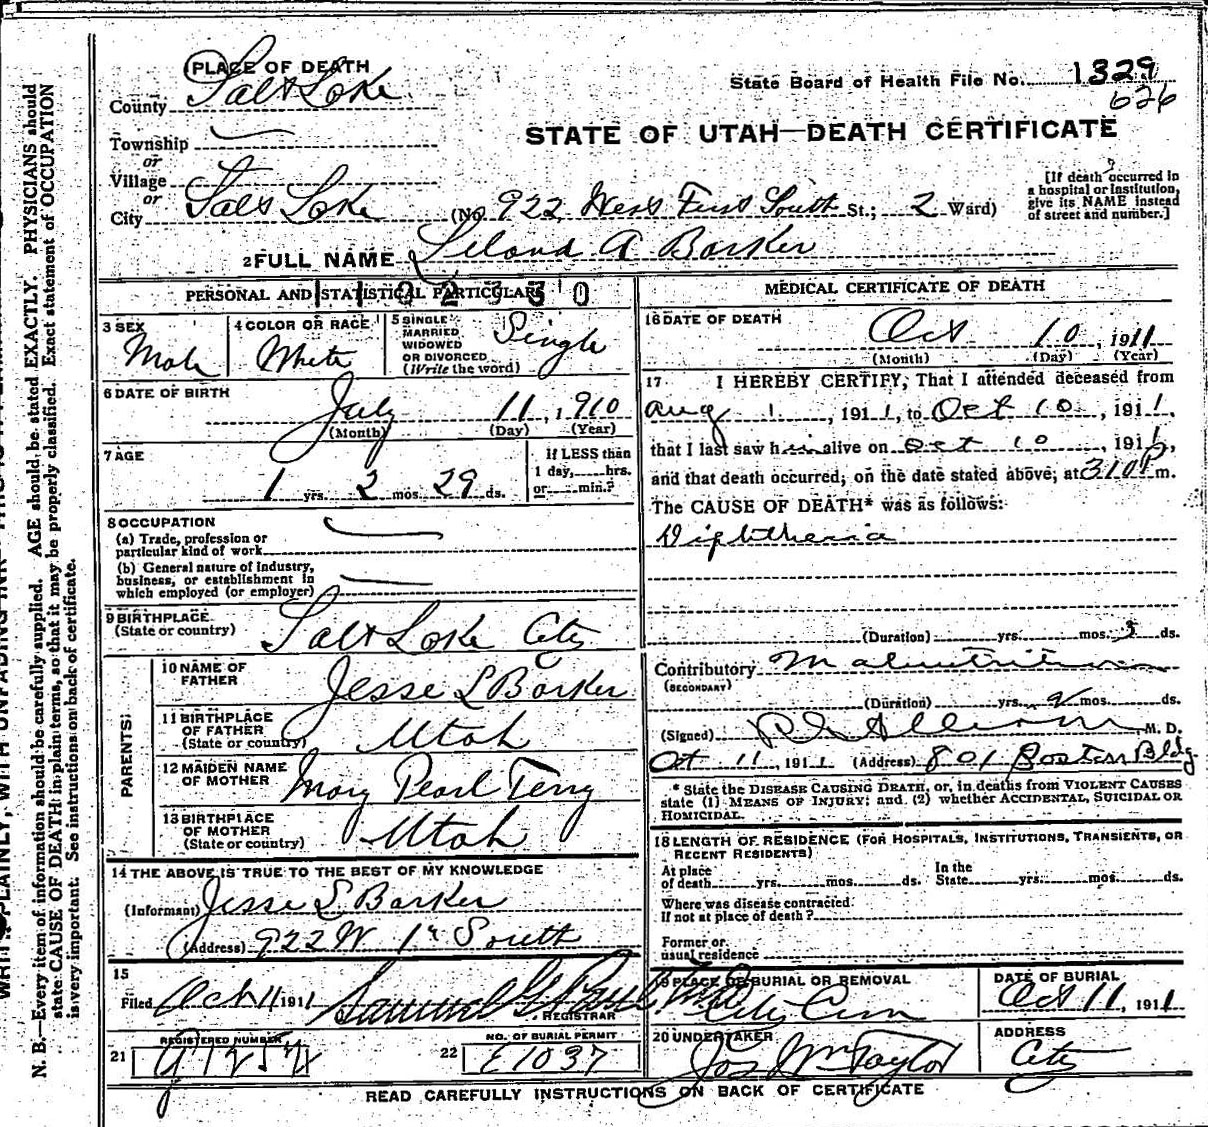 PLACE OF DEATH
County Salt Lake
State Board of Health File No. 1329
626
STATE OF UTAH—DEATH CERTIFICATE
Township
or
Village
or
City Salt Lake (No. 922 West First South St.; 2 Ward)
[If death occurred in a hospital or institution, give its NAME instead of street and number.]
2 FULL NAME Leland A Barker
PERSONAL AND STATISTICAL PARTICULARS
3 SEX Male
4 COLOR OR RACE White
5 SINGLE MARRIED WIDOWED OR DIVORCED (Write the word) Single
6 DATE OF BIRTH July 11, 1910
(Month) (Day) (Year)
7 AGE 1 yrs. 2 mos. 29 ds.
If LESS than 1 day, hrs. or min.?
8 OCCUPATION
(a) Trade, profession or particular kind of work
(b) General nature of industry, business, or establishment in which employed (or employer)
9 BIRTHPLACE (State or country) Salt Lake City
PARENTS
10 NAME OF FATHER Jesse L Barker
11 BIRTHPLACE OF FATHER (State or country) Utah
12 MAIDEN NAME OF MOTHER Mary Pearl Terry
13 BIRTHPLACE OF MOTHER (State or country) Utah
14 THE ABOVE IS TRUE TO THE BEST OF MY KNOWLEDGE
(Informant) Jesse L Barker
(Address) 922 W 1st South
15
Filed Oct 11 1911 Samuel G Paul REGISTRAR
21 REGISTERED NUMBER
22 NO. OF BURIAL PERMIT E1037
MEDICAL CERTIFICATE OF DEATH
16 DATE OF DEATH Oct 10, 1911
(Month) (Day) (Year)
17 I HEREBY CERTIFY, That I attended deceased from
Aug 1, 1911, to Oct 10, 1911,
that I last saw him alive on Oct 10, 1911,
and that death occurred, on the date stated above, at 310 P m.
The CAUSE OF DEATH* was as follows:
Diphtheria
(Duration) yrs. mos. 3 ds.
Contributory Malnutrition
(SECONDARY)
(Duration) yrs. 2 mos. ds.
(Signed) M. D.
Oct 11, 1911 (Address) 801 Boston Bldg
* State the DISEASE CAUSING DEATH, or, in deaths from VIOLENT CAUSES
state (1) MEANS OF INJURY; and (2) whether ACCIDENTAL, SUICIDAL OR
HOMICIDAL.
18 LENGTH OF RESIDENCE (FOR HOSPITALS, INSTITUTIONS, TRANSIENTS, OR
RECENT RESIDENTS)
At place of death yrs. mos. ds. In the State yrs. mos. ds.
Where was disease contracted
If not at place of death?
Former or
usual residence
19 PLACE OF BURIAL OR REMOVAL City Cem
DATE OF BURIAL Oct 11, 1911
20 UNDERTAKER Jos Wm Taylor
ADDRESS City
READ CAREFULLY INSTRUCTIONS ON BACK OF CERTIFICATE
N. B.—Every item of information should be carefully supplied. AGE should be stated EXACTLY. PHYSICIANS should
state CAUSE OF DEATH in plain terms, so that it may be properly classified. Exact statement of OCCUPATION
is very important. See instructions on back of certificate.